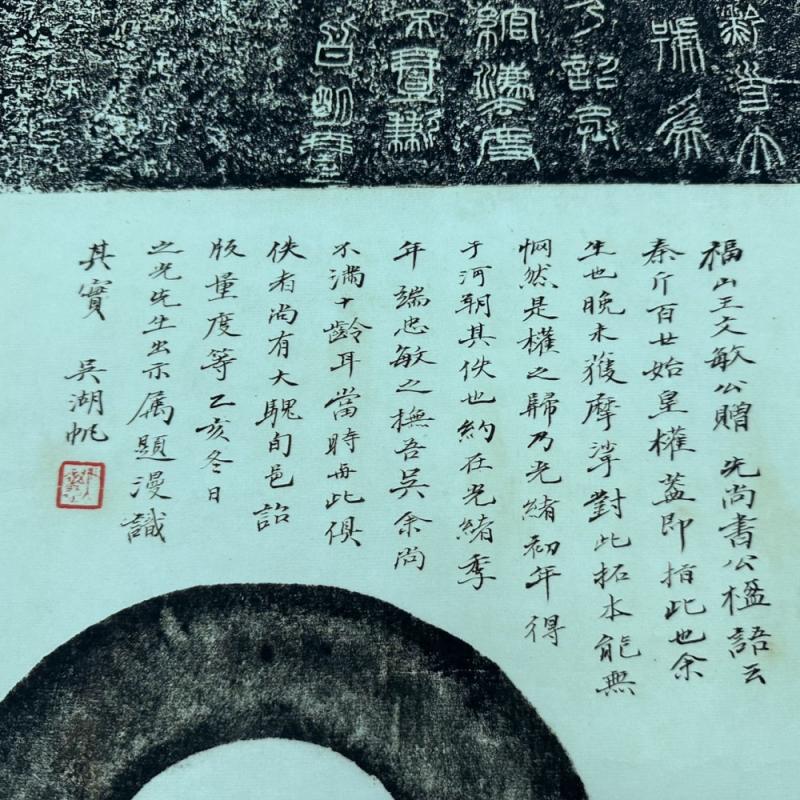 黔首大
號為
乃詔丞
綰灋度
不壹歉
皆明壹
福山王文敏公贈 先尚書公楹語云
秦斤百廿始皇權蓋即指此也余
生也晚未獲摩挲對此拓本能無
惘然是權之歸乃光緒初年得
于河朔其佚也約在光緒季
年端忠敏之撫吾吳余尚
不滿十齡耳當時與此俱
佚者尚有大騩旬邑詔
版量度等乙亥冬日
之光先生出示属題漫識
其實 吳湖帆